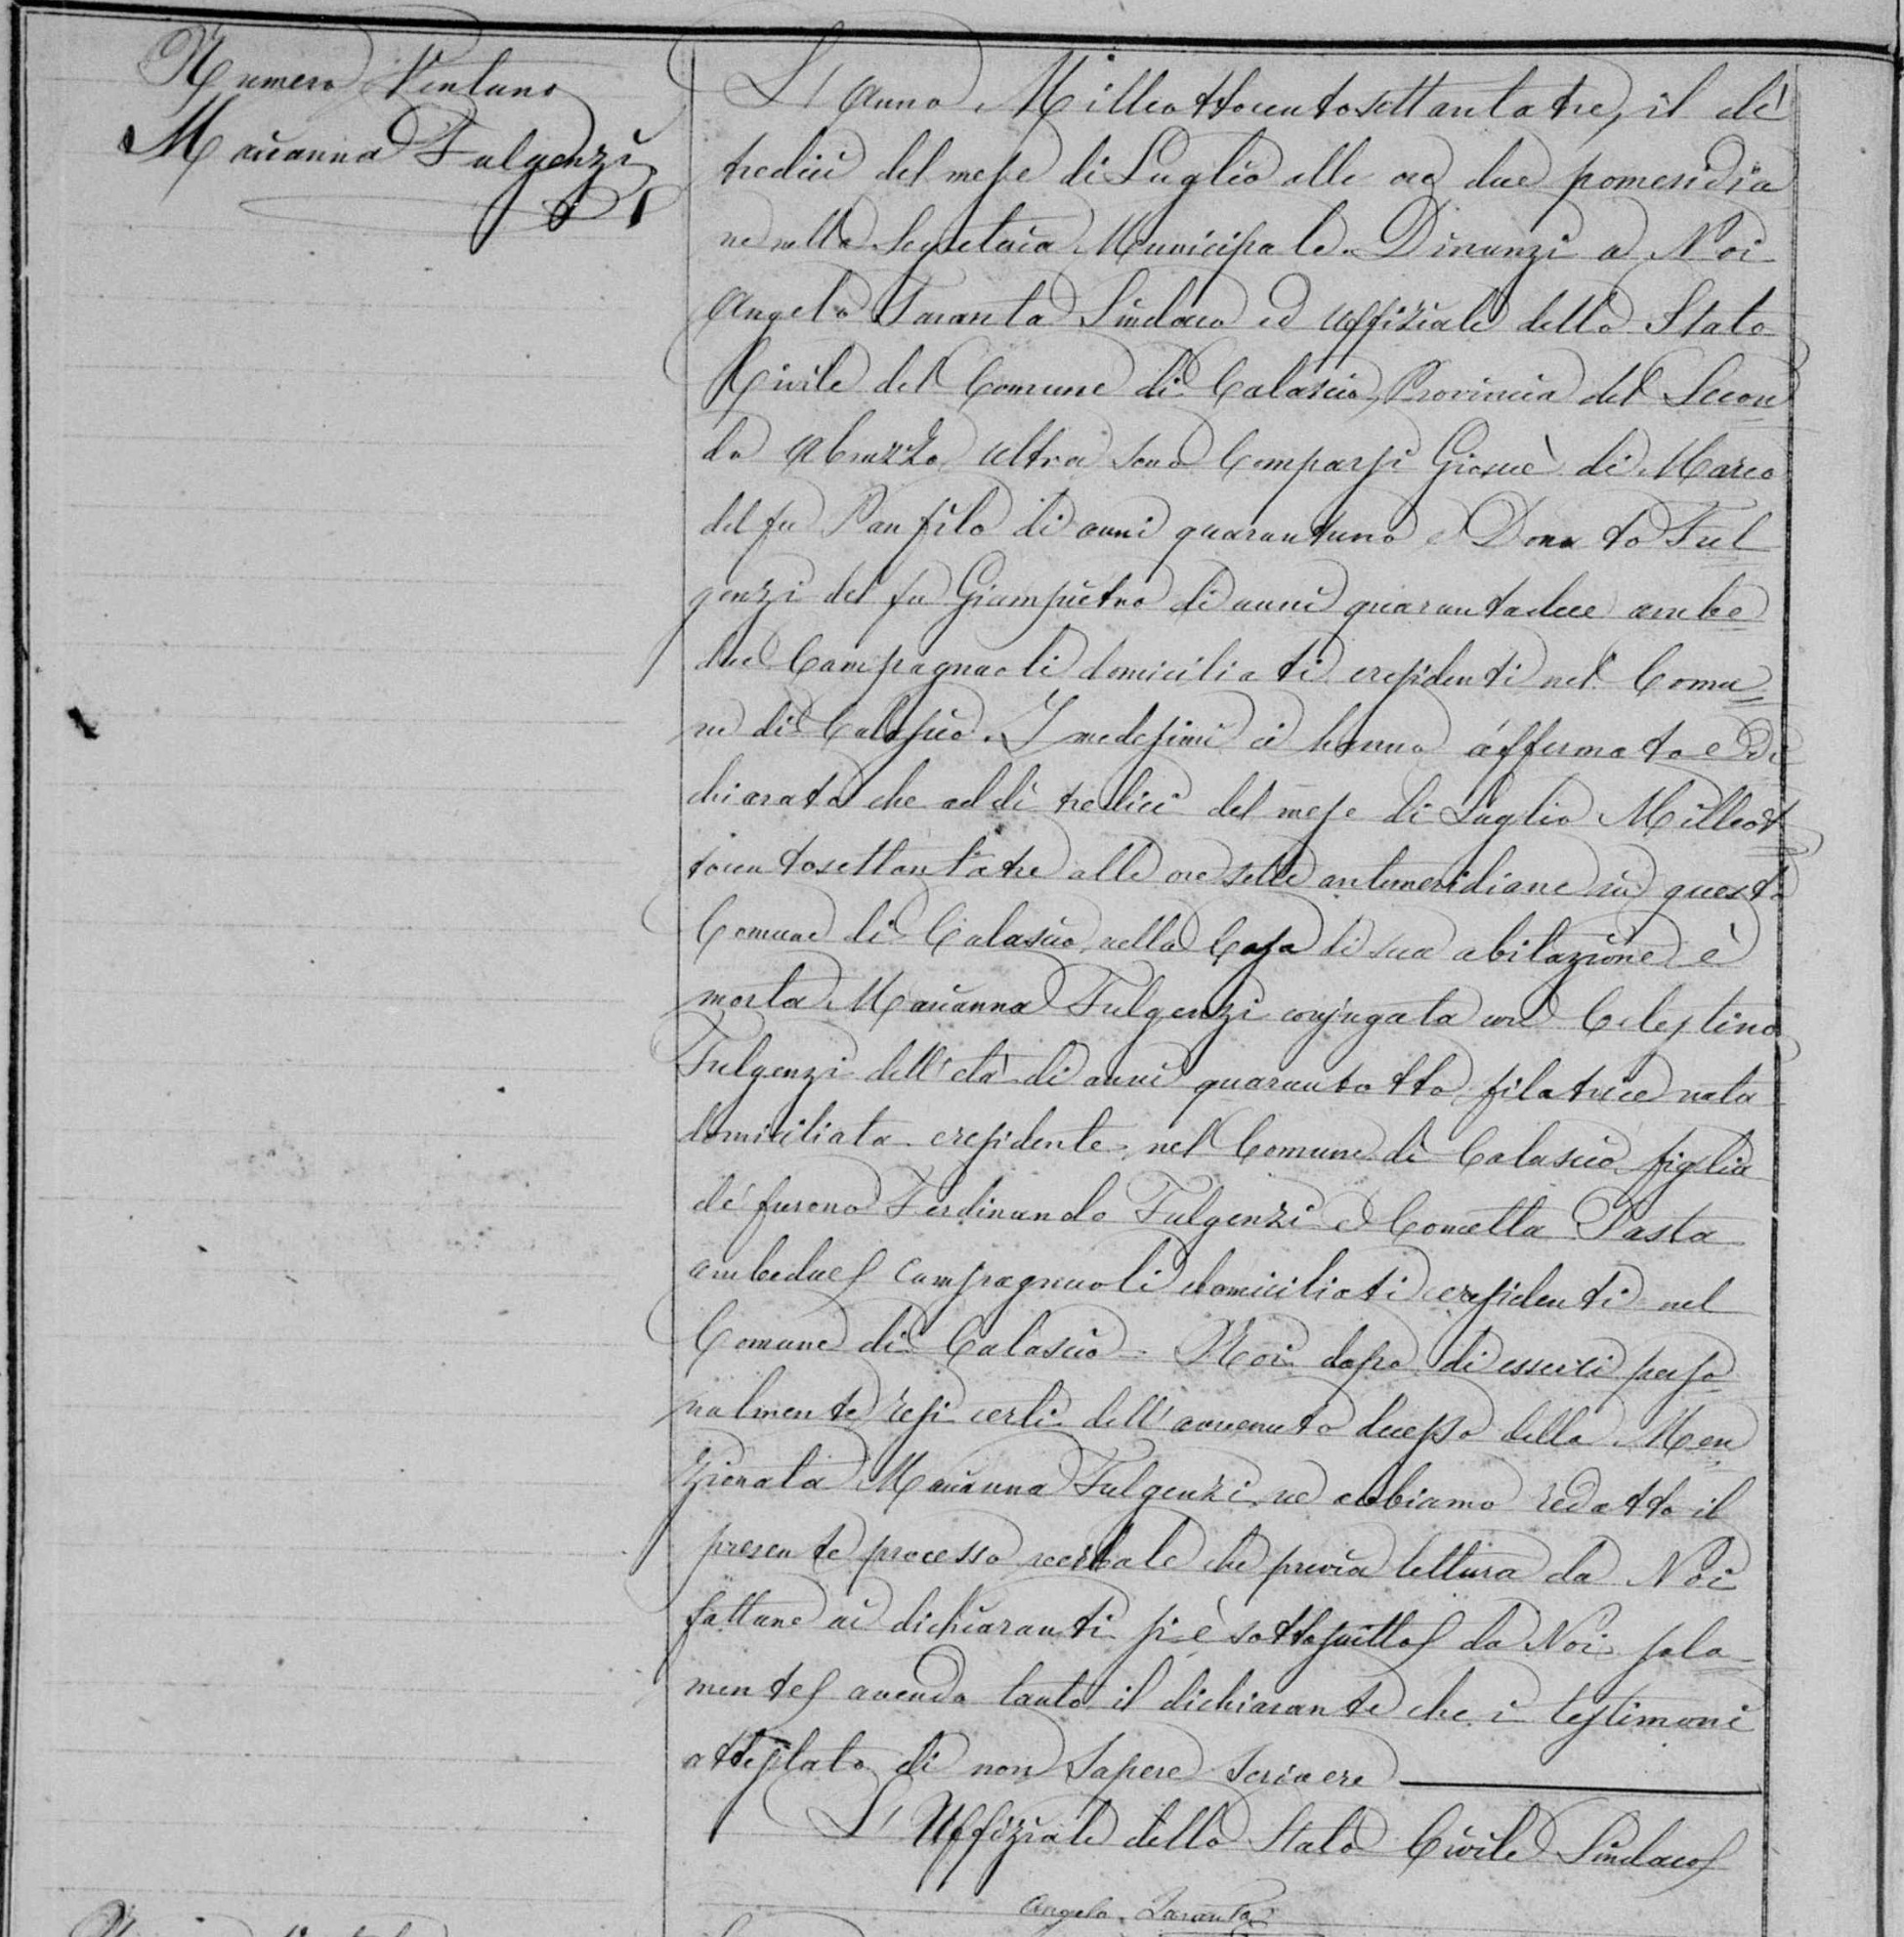 Numero Ventuno
Marianna Fulgenzi
L'Anno Milleottocentosettantatre, il dì
tredici del mese di Luglio alle ore due pomeridia
ne nella Segretaria Municipale. Dinanzi a Noi
Angelo Taranta Sindaco ed Uffiziale dello Stato
Civile del Comune di Calascio, Provincia del Secon
do Abruzzo Ultra sono Comparsi Giosuè di Marco
del fu Panfilo di anni quarantuno e Donato Ful
genzi del fu Giampietro di anni quarantadue ambe
due Campagnuoli domiciliati eresidenti nel Comu
ne di Calascio. I medesimi ci hanno affermato e di
chiarato che addì tredici del mese di Luglio Milleot
tocentosettantatre alle ore sette antemeridiane in questo
Comune di Calascio, nella Casa di sua abitazione è
morta Marianna Fulgenzi conjugata con Celestino
Fulgenzi dell'età di anni quarantotto, filatrice nata
domiciliata eresidente, nel Comune di Calascio figlia
de' furono Ferdinando Fulgenzi e Concetta Pasta
ambedue Campagnuoli domiciliati eresidenti nel
Comune di Calascio - Noi dopo di esserci perso
nalmente resi certi dell'avvenuto decesso della Men
zionata Marianna Fulgenzi ne abbiamo redatto il
presente processo verbale che previa lettura da Noi
fattane ai dichiaranti si è sottoscritto da Noi sola
mente avendo tanto il dichiarante che i testimoni
attestato di non sapere scrivere
L'Uffiziale dello Stato Civile Sindaco
Angelo Taranta